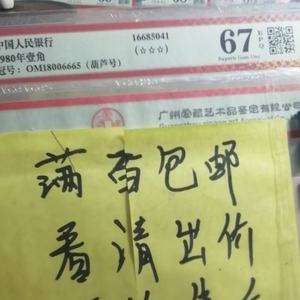 中国人民银行 16685041
1980年壹角 (☆☆☆)
冠号：OM18006665（葫芦号）
67 EPQ
Superb Gem Unc
广州爱藏艺术品鉴定有限公
满百包邮
看清出价